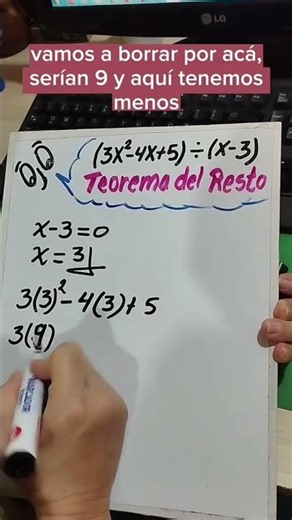 LG
vamos a borrar por acá,
serían 9 y aquí tenemos
menos
(3x²-4x+5)÷(x-3)
Teorema del Resto
x-3=0
x=3
3(3)²-4(3)+5
3(9)